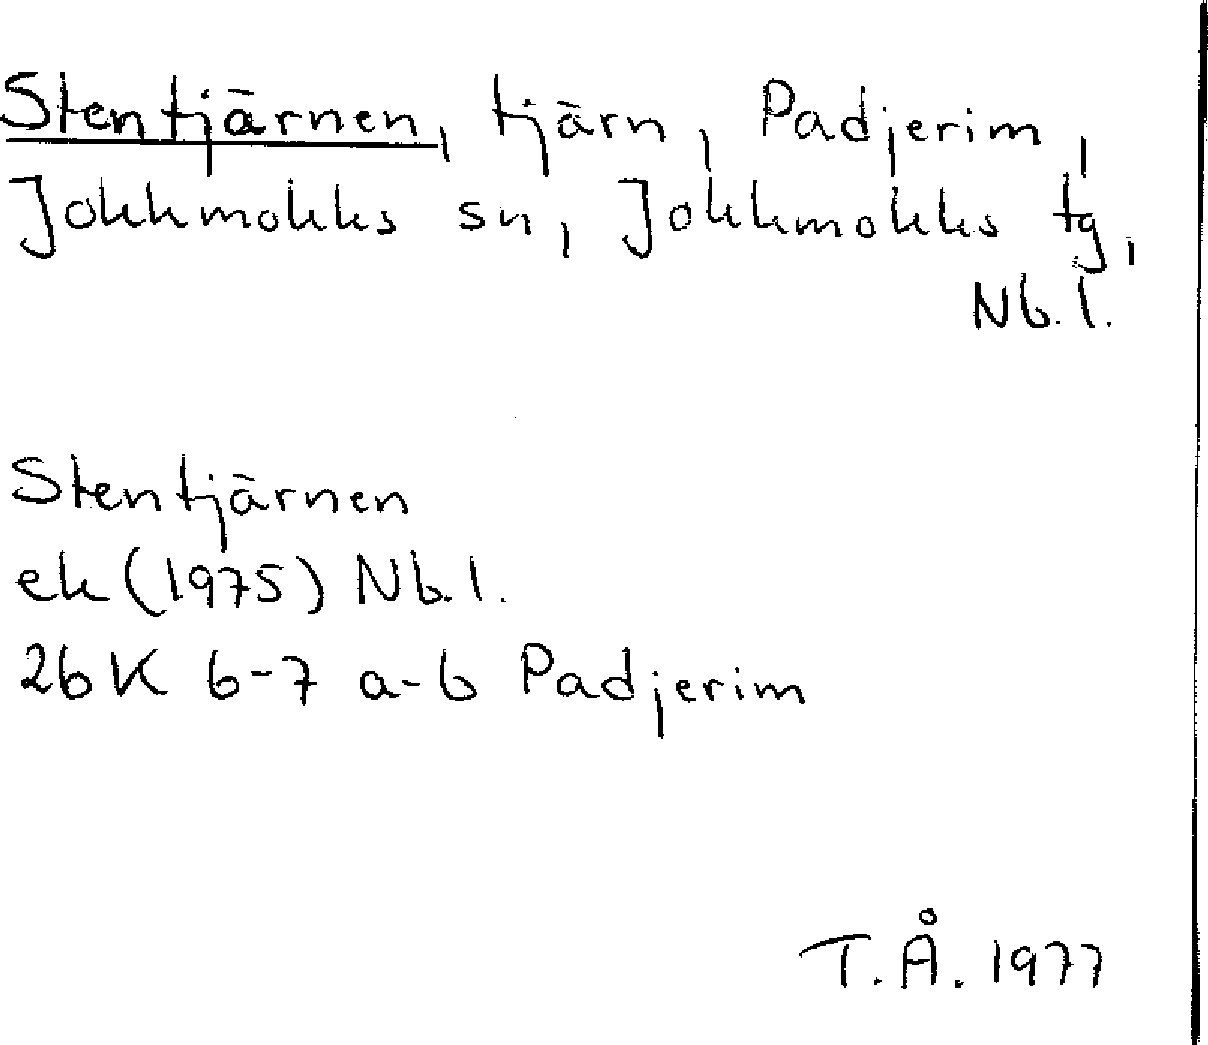 Stentjärnen, tjärn, Padjerim,
Jokkmokks sn, Jokkmokks tg,
Nb. l.
Stentjärnen
ek (1975) Nb. l.
26 K 6-7 a-b Padjerim
T. Å. 1977